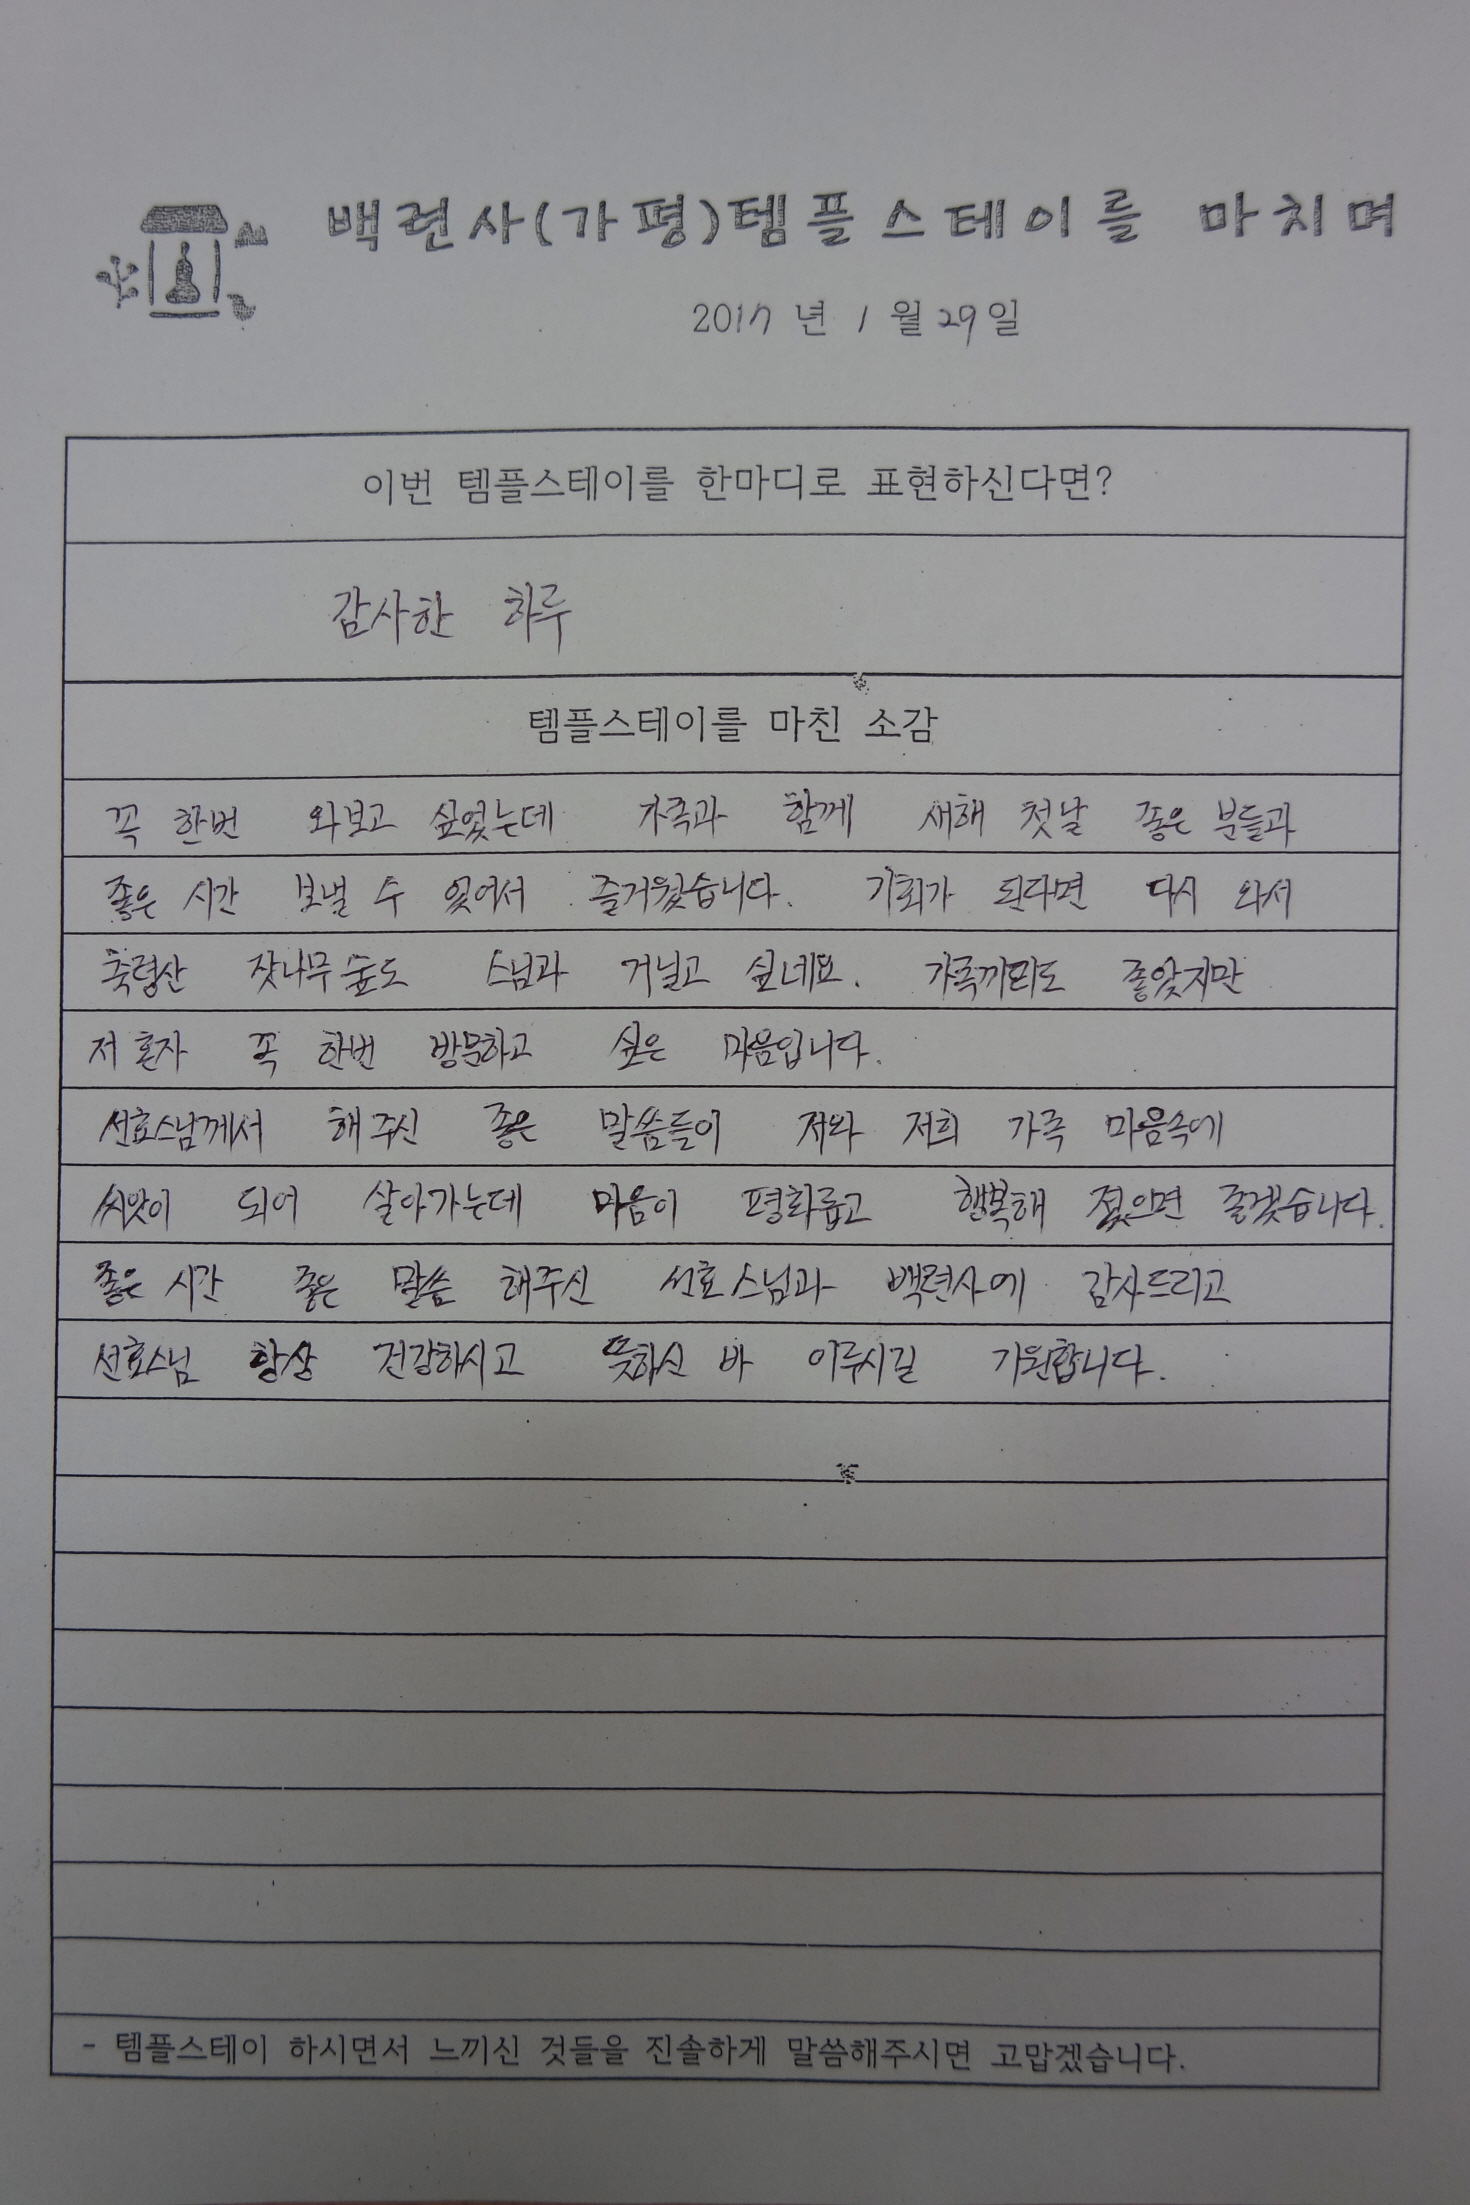 백련사(가평)템플스테이를 마치며
2017년 1월 29일
이번 템플스테이를 한마디로 표현하신다면?
감사한 하루
템플스테이를 마친 소감
꼭 한번 와보고 싶었는데 가족과 함께 새해 첫날 좋은 분들과
좋은 시간 보낼 수 있어서 즐거웠습니다. 기회가 된다면 다시 와서
축령산 잣나무숲도 스님과 거닐고 싶네요. 가족끼리도 좋았지만
저 혼자 꼭 한번 방문하고 싶은 마음입니다.
선효스님께서 해주신 좋은 말씀들이 저와 저희 가족 마음속에
씨앗이 되어 살아가는데 마음이 평화롭고 행복해 졌으면 좋겠습니다.
좋은 시간 좋은 말씀 해주신 선효스님과 백련사에 감사드리고
선효스님 항상 건강하시고 뜻하신 바 이루시길 기원합니다.
- 템플스테이 하시면서 느끼신 것들을 진솔하게 말씀해주시면 고맙겠습니다.